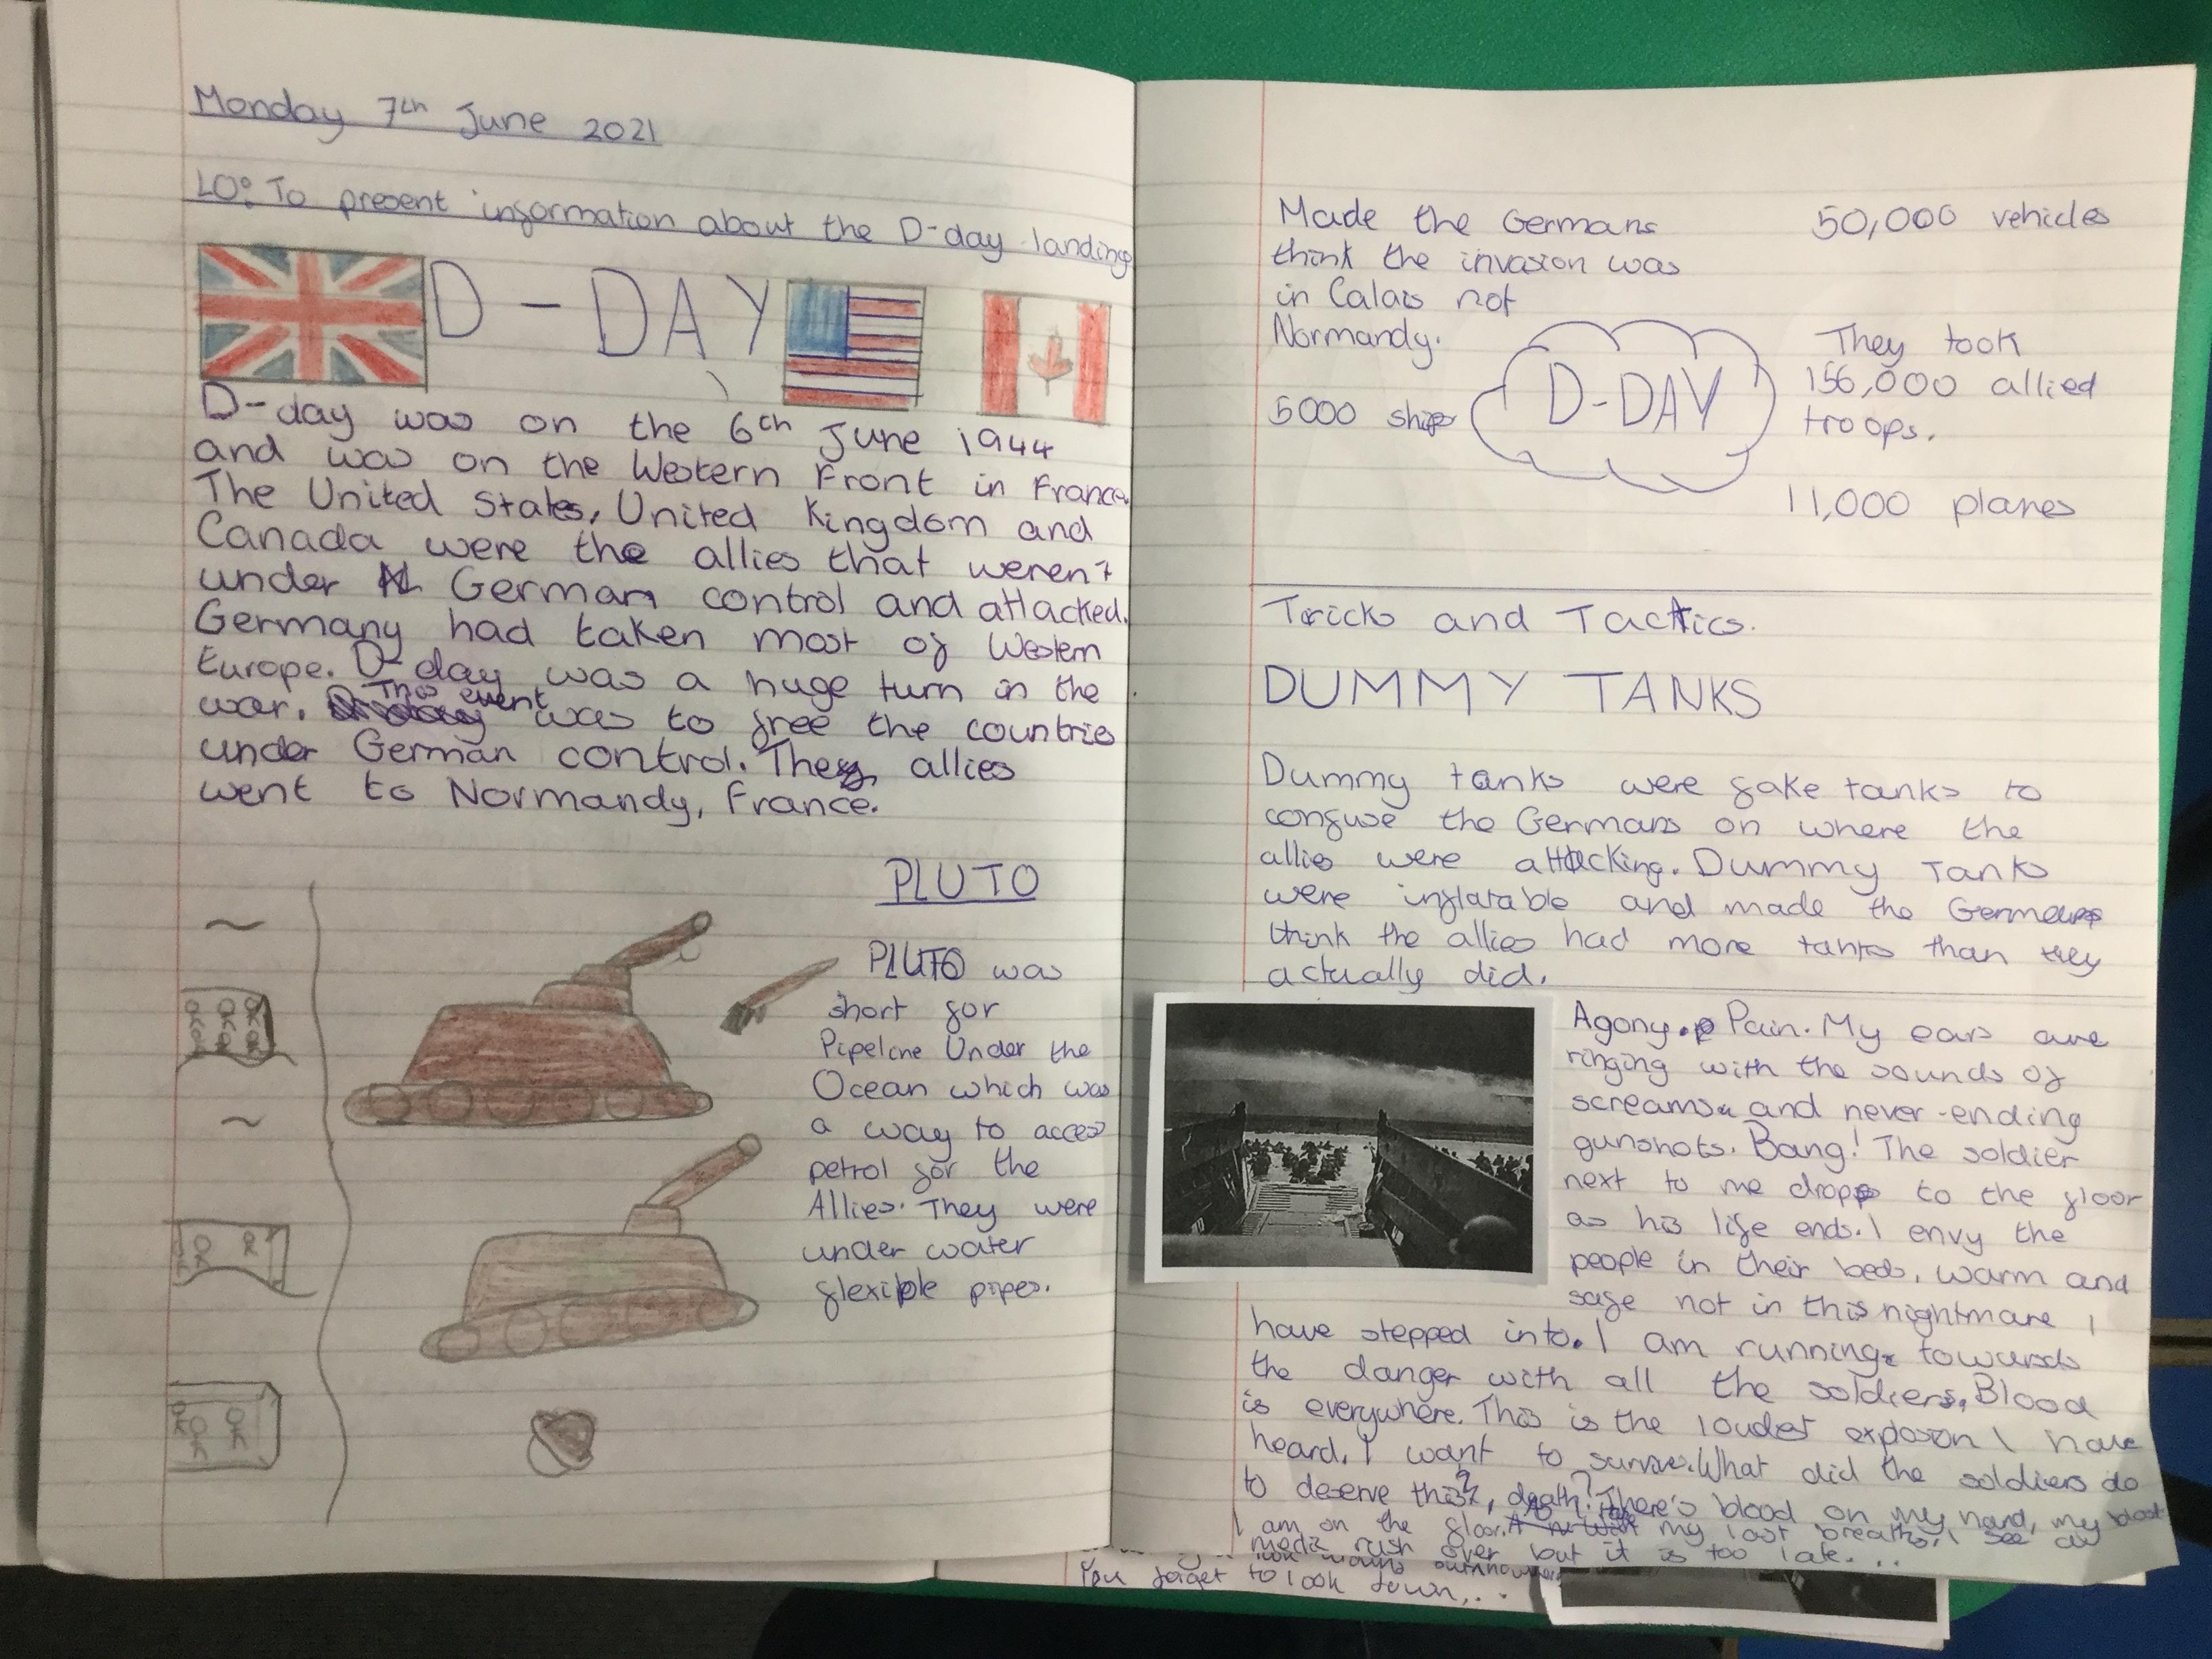 Monday 7th June 2021
LO: To present information about the D-day landing
D-DAY
D-day was on the 6th June 1944
and was on the Western Front in France.
The United States, United Kingdom and
Canada were the allies that weren't
under German control and attacked.
Germany had taken most of Western
Europe. D-day was a huge turn in the
war. This event was to free the countries
under German control. The allies
went to Normandy, France.
PLUTO
PLUTO was
short for
Pipeline Under the
Ocean which was
a way to access
petrol for the
Allies. They were
under water
flexible pipes.
Made the Germans
think the invasion was
in Calais not
Normandy.
5000 ships
D-DAY
50,000 vehicles
They took
156,000 allied
troops.
11,000 planes
Tricks and Tactics.
DUMMY TANKS
Dummy tanks were fake tanks to
confuse the Germans on where the
allies were attacking. Dummy Tanks
were inflatable and made the Germans
think the allies had more tanks than they
actually did.
Agony. Pain. My ears are
ringing with the sounds of
screams and never-ending
gunshots. Bang! The soldier
next to me drops to the floor
as his life ends. I envy the
people in their beds, warm and
safe not in this nightmare I
have stepped into. I am running towards
the danger with all the soldiers. Blood
is everywhere. This is the loudest exposion I have
heard. I want to survive. What did the soldiers do
to deserve this?, death? There's blood on my hand, my blood
I am on the floor. my last breaths, I see a
medic rush over but it is too late...
You forget to look down...